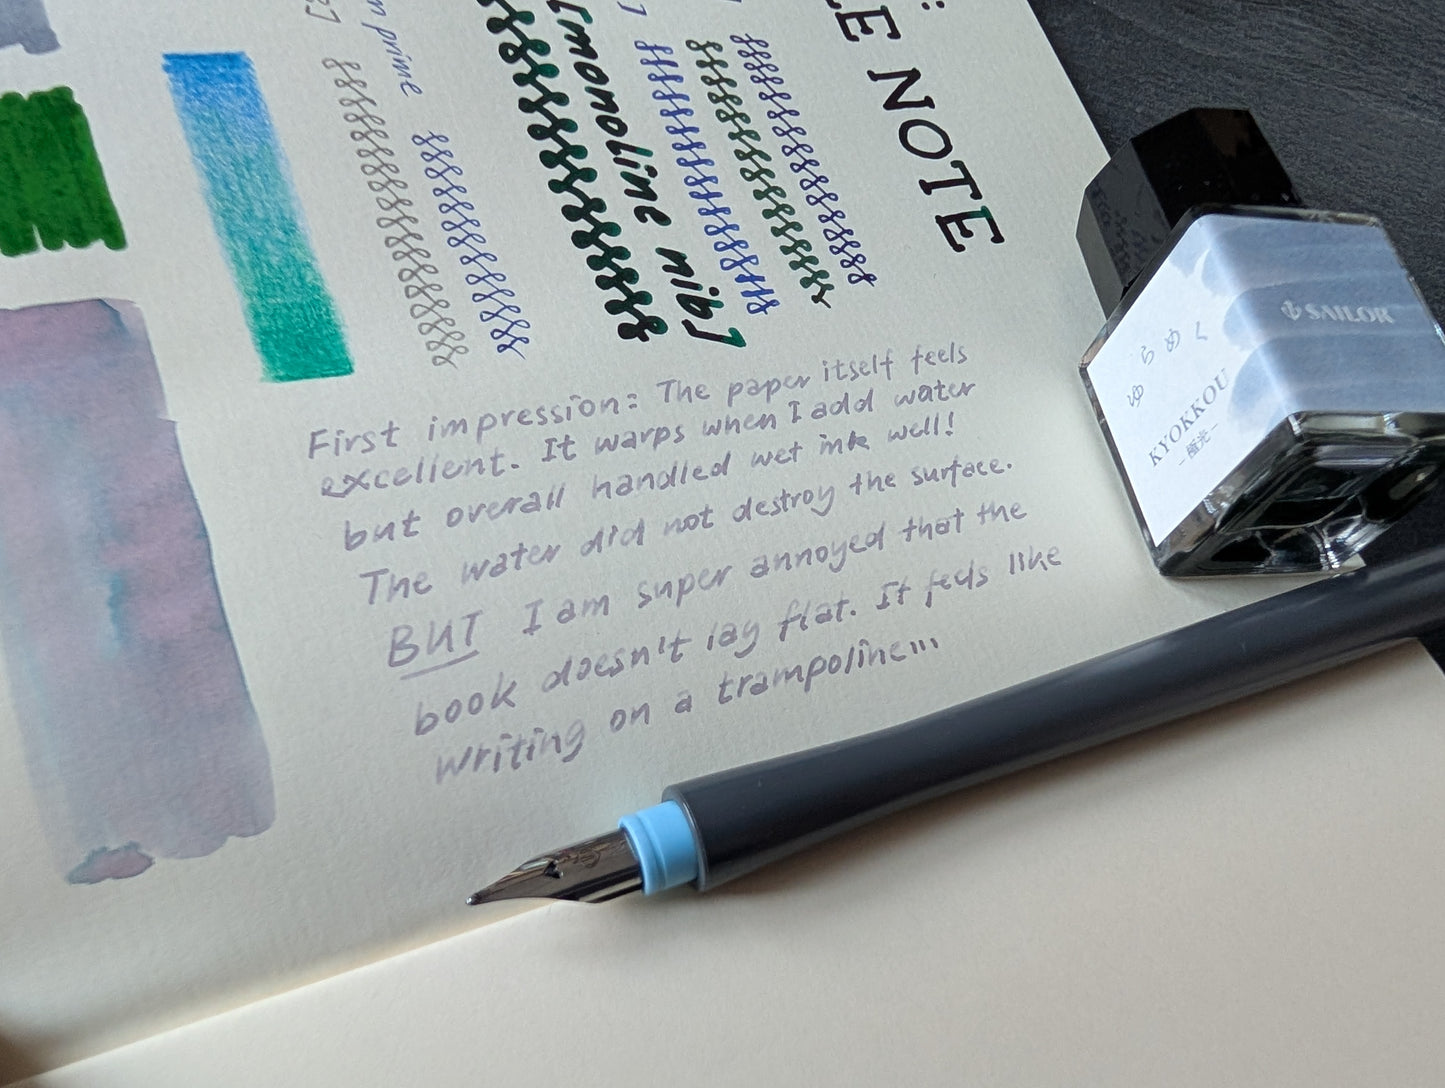 : 
LE NOTE
n prime
[qiu shilouowj
First impression: The paper itself feels
excellent. It warps when I add water
but overall handled wet ink well!
The water did not destroy the surface.
BUT I am super annoyed that the
book doesn't lay flat. It feels like
writing on a trampoline...
SAILOR
ゆらめく
KYOKKOU
-極光-